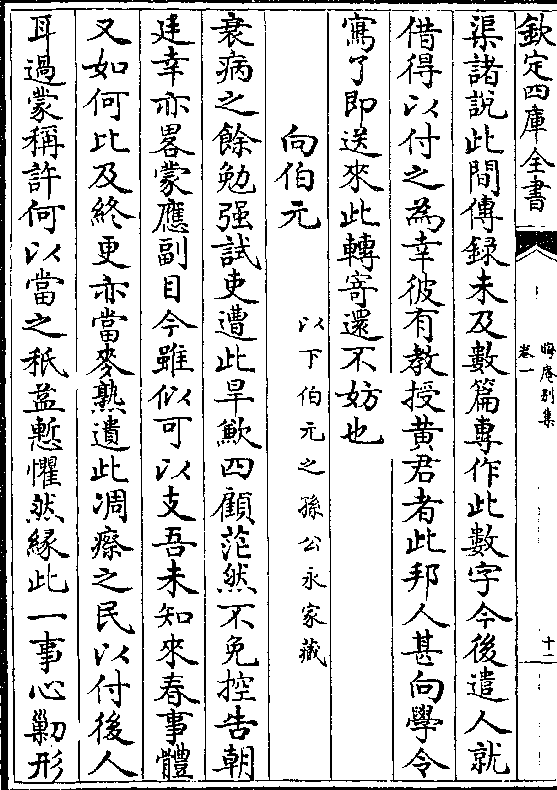 欽定四庫全書
晦庵别集
卷一
十二
渠諸說此間傳録未及數篇專作此數字今後遣人就
借得以付之為幸彼有教授黄君者此邦人甚向學令
寫了即送來此轉寄還不妨也
向伯元
以下伯元之孫公永家藏
衰病之餘勉强試吏遭此旱歉四顧茫然不免控告朝
廷幸亦畧蒙應副目今雖似可以支吾未知來春事體
又如何比及終更亦當麥熟遺此凋瘵之民以付後人
耳過蒙稱許何以當之秖益慙懼然緣此一事心勦形